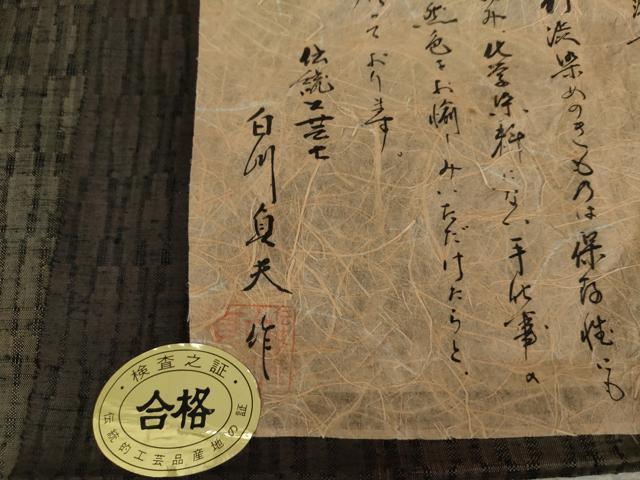 渋染めのきものは保存性にも
み、化学染料にない手仕事の
然色をお愉しみいただけたらと、
っております。
伝統工芸士
白川貞夫 作
検査之証
合格
伝統的工芸品産地の証